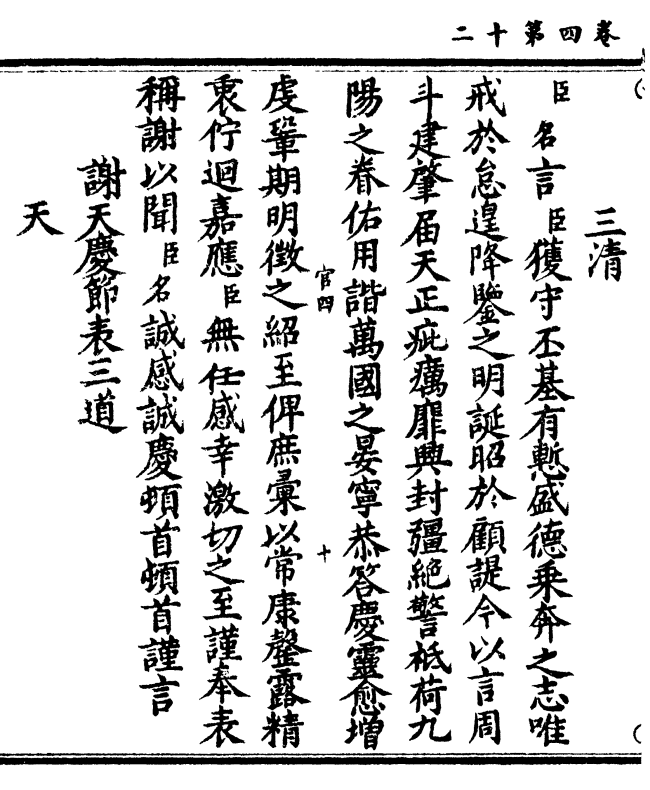 卷四第十二
三清
臣名言臣獲守丕基有慙盛德乘奔之志唯
戒於怠遑降鑒之明誕昭於顧諟今以言周
斗建肇届天正疵癘靡興封疆絶警祗荷九
陽之眷佑用諧萬國之晏寧恭答慶靈愈增
官四
十
虔鞏期明徵之紹至俾庶彙以常康罄露精
衷佇迴嘉應臣無任感幸激切之至謹奉表
稱謝以聞臣名誠感誠慶頓首頓首謹言
謝天慶節表三道
天